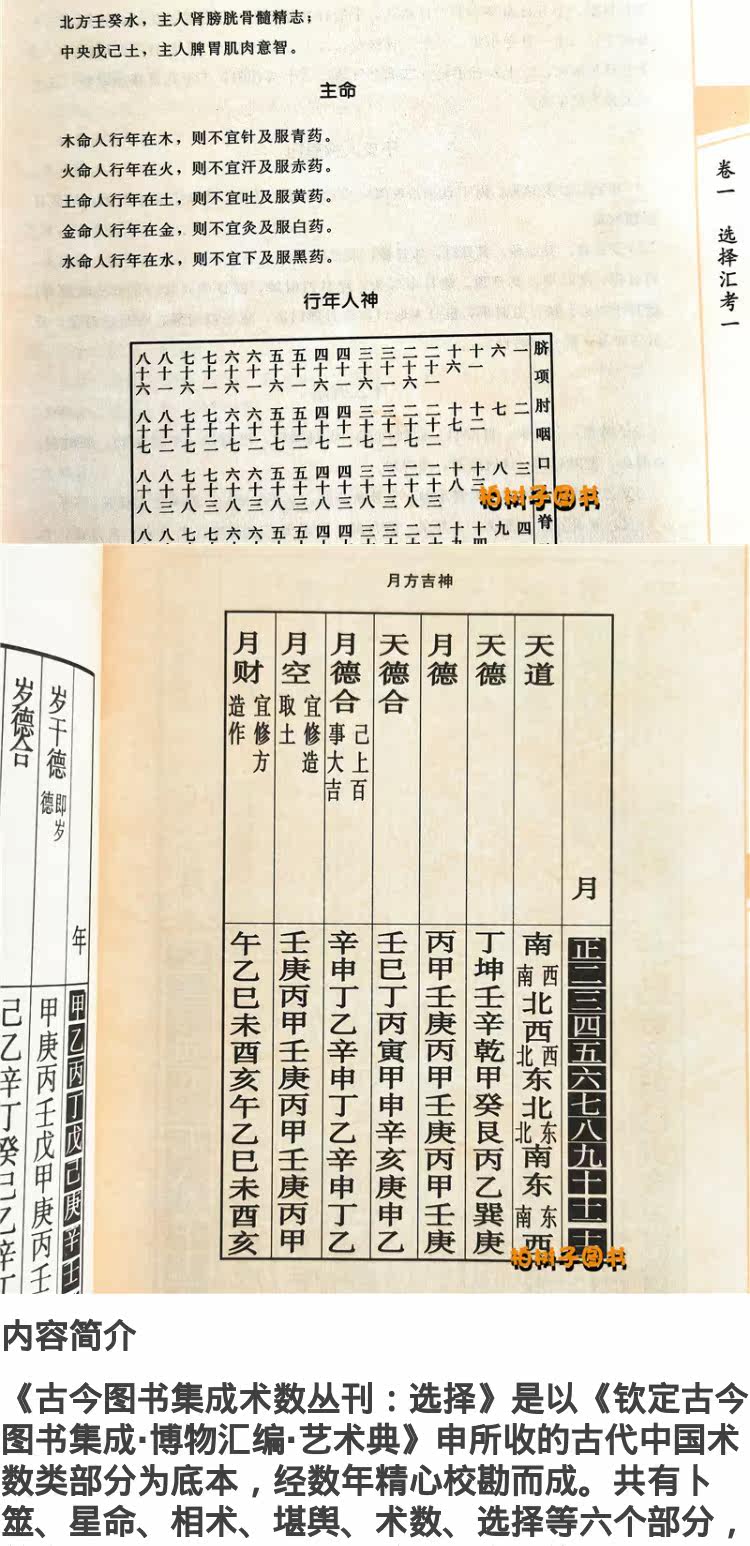 北方壬癸水，主人肾膀胱骨髓精志；
中央戊己土，主人脾胃肌肉意智。
主命
木命人行年在木，则不宜针及服青药。
火命人行年在火，则不宜汗及服赤药。
土命人行年在土，则不宜吐及服黄药。
金命人行年在金，则不宜灸及服白药。
水命人行年在水，则不宜下及服黑药。
行年人神
卷一 选择汇考一
脐 一 六 十一 十六 二十一 二十六 三十一 三十六 四十一 四十六 五十一 五十六 六十一 六十六 七十一 七十六 八十一 八十六
柏树子图书
月方吉神
月 正 二 三 四 五 六 七 八 九 十 十一 十二
天道 南 西南 北 西 西北 东 北 东北 南 东 东南 西
天德 丁 坤 壬 辛 乾 甲 癸 艮 丙 乙 巽 庚
月德 丙 甲 壬 庚 丙 甲 壬 庚 丙 甲 壬 庚
天德合 壬 巳 丁 丙 寅 甲 申 辛 亥 庚 申 乙
月德合 己上百事大吉 辛 申 丁 乙 辛 申 丁 乙 辛 申 丁 乙
月空 宜修造取土 壬 庚 丙 甲 壬 庚 丙 甲 壬 庚 丙 甲
月财 宜修方造作 午 乙 巳 未 酉 亥 午 乙 巳 未 酉 亥
年 甲 乙 丙 丁 戊 己 庚 辛 壬
岁干德 即岁德 甲 庚 丙 壬 戊 甲 庚 丙 壬
岁德合 己 乙 辛 丁 癸 己 乙 辛 丁
柏树子图书
内容简介
《古今图书集成术数丛刊：选择》是以《钦定古今
图书集成·博物汇编·艺术典》申所收的古代中国术
数类部分为底本，经数年精心校勘而成。共有卜
筮、星命、相术、堪舆、术数、选择等六个部分，